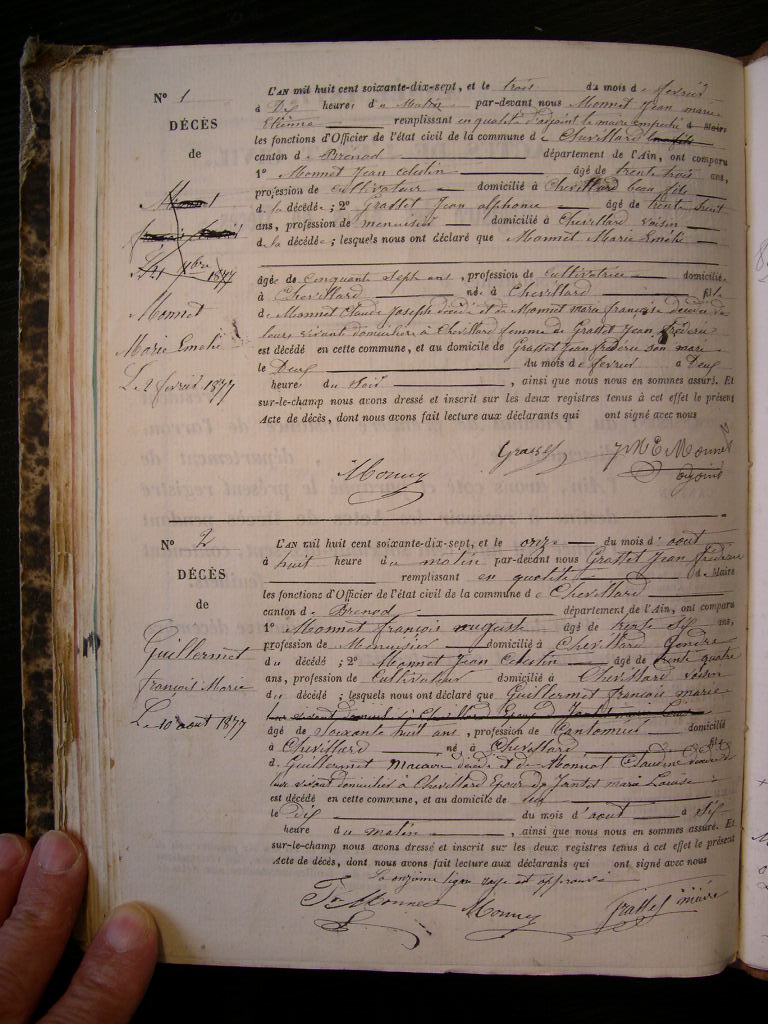 N° 1
DÉCÈS
de
7bre 1877
Monnet
Marie Emelie
Le 2 fevrier 1877
L'AN mil huit cent soixante-dix-sept, et le trois du mois de fevrier
à Dix heures du Matin par-devant nous Monnet Jean marie
Etienne remplissant en qualité d'adjoint le maire empeché de Maire
les fonctions d'Officier de l'état civil de la commune de Chevillard
canton de Brenod département de l'Ain, ont comparu
1° Monnet Jean Celestin âgé de trente trois ans,
profession de Cultivateur domicilié à Chevillard beau fils
de la décédée ; 2° Grasset Jean alphonse âgé de trente huit
ans, profession de menuisier domicilié à Chevillard voisin
de la décédée ; lesquels nous ont déclaré que Monnet Marie Emelie
âgée de Cinquante sept ans, profession de Cultivatrice domiciliée
à Chevillard née à Chevillard fille
de Monnet Claude Joseph décédé et de Monnet marie françoise décédée de
leurs vivants domiciliés à Chevillard femme de Grasset Jean frederic
est décédé en cette commune, et au domicile de Grasset Jean frederic son mari
le Deux du mois de fevrier à Deux
heures du soir, ainsi que nous nous en sommes assuré. Et
sur-le-champ nous avons dressé et inscrit sur les deux registres tenus à cet effet le présent
Acte de décès, dont nous avons fait lecture aux déclarants qui ont signé avec nous
Grasset JME Monnet
Monnet adjoint
N° 2
DÉCÈS
de
Guillermet
François Marie
Le 10 aout 1877
L'AN mil huit cent soixante-dix-sept, et le onze du mois d'aout
à huit heure du matin par-devant nous Grasset Jean frederic
remplissant en qualité de Maire
les fonctions d'Officier de l'état civil de la commune de Chevillard
canton de Brenod département de l'Ain, ont comparu
1° Monnet françois auguste âgé de trente six ans,
profession de Menuisier domicilié à Chevillard Gendre
du décédé ; 2° Monnet Jean Celestin âgé de trente quatre
ans, profession de Cultivateur domicilié à Chevillard voisin
du décédé ; lesquels nous ont déclaré que Guillermet francois marie
âgé de soixante huit ans, profession de Cantonnier domicilié
à Chevillard né à Chevillard fils
de Guillermet Macaire décédé et de Monnet Claudine décédée de
leur vivant domiciliés à Chevillard Epoux de Jantet marie Louise
est décédé en cette commune, et au domicile de lui
le Dix du mois d'aout à six
heure du matin, ainsi que nous nous en sommes assuré. Et
sur-le-champ nous avons dressé et inscrit sur les deux registres tenus à cet effet le présent
Acte de décès, dont nous avons fait lecture aux déclarants qui ont signé avec nous
La onzieme ligne rayé est approuvé
Monnet Monnet Grasset maire